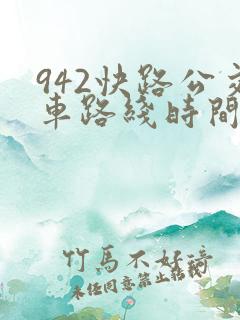 942快路公交
車路綫時間
竹馬不好騎
未任同意禁止转载